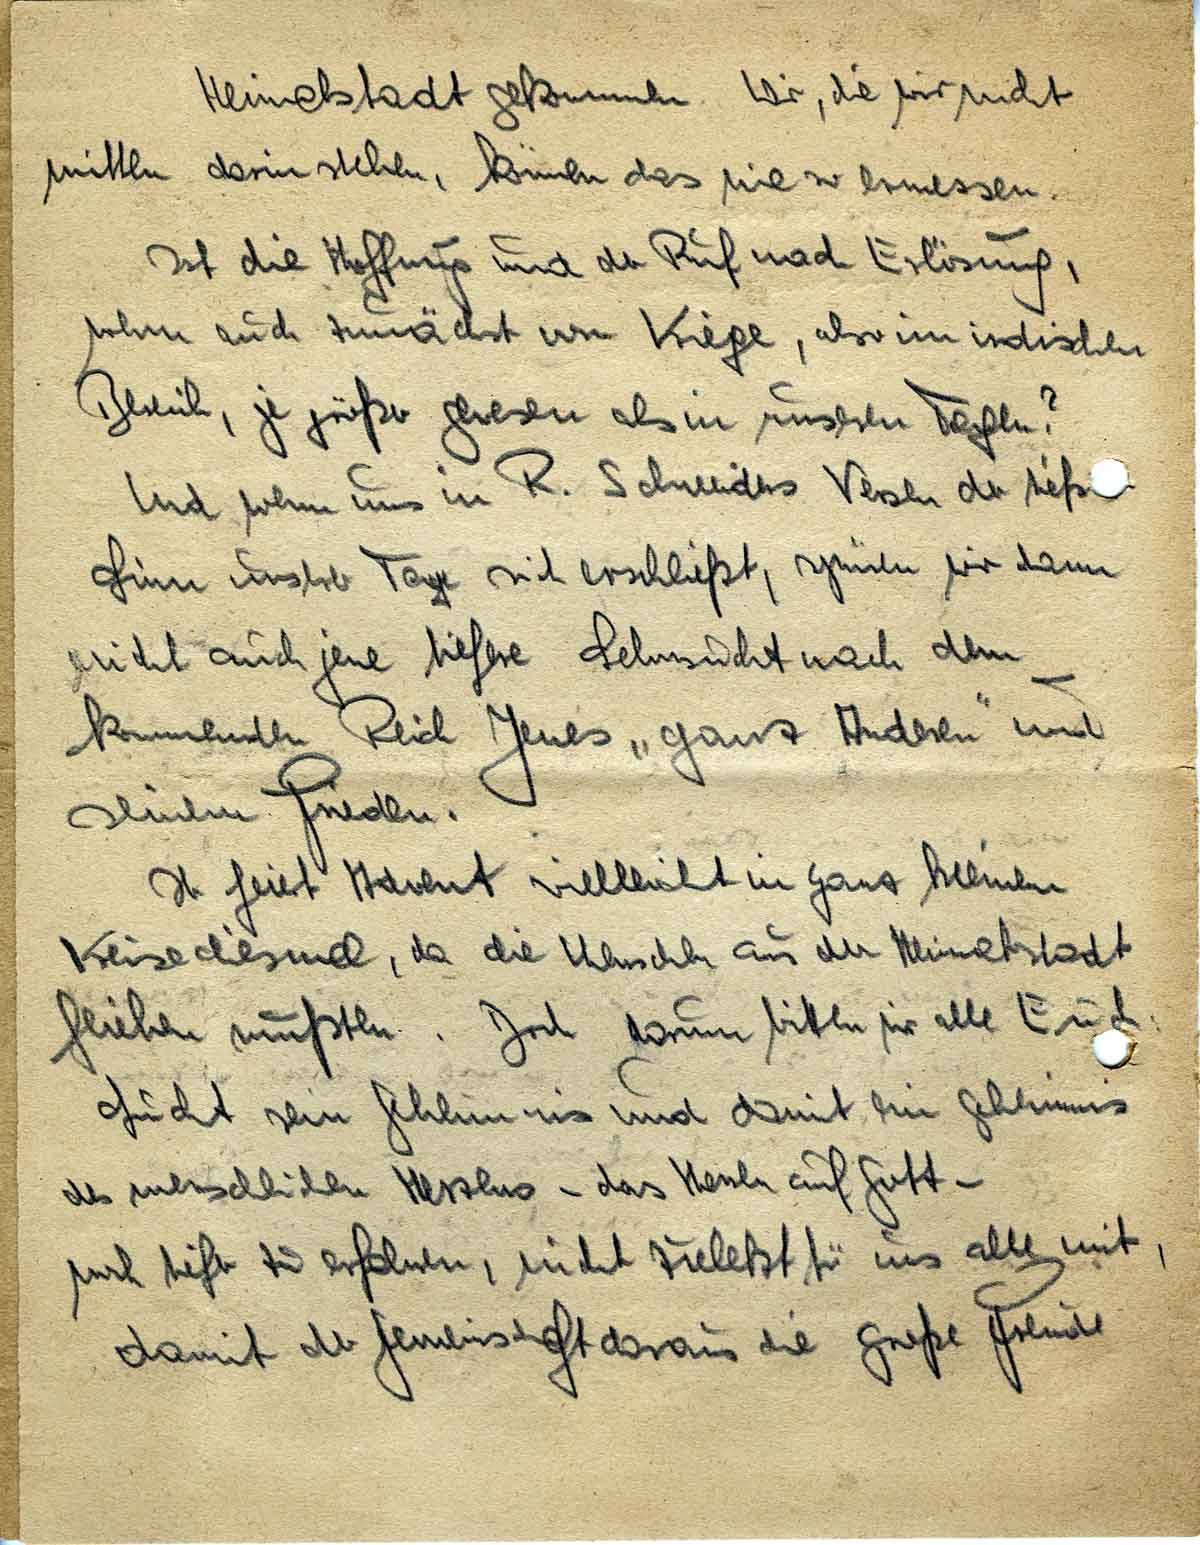 Heimatstadt gekommen. Wir, die wir nicht
mitten darin stehen, können das nie so ermessen.
Ist die Hoffnung und der Ruf nach Erlösung,
wenn auch zunächst vom Kriege, also im irdischen
Bereich, je größer gewesen als in unseren Tagen?
Und wenn uns in R. Schneiders Versen der tiefste
Sinn unsrer Tage sich erschließt, spüren wir dann
nicht auch jene tiefere Sehnsucht nach dem
kommenden Reich Jenes „ganz Anderen" und
seinem Frieden.
Ihr feiert Advent vielleicht in ganz kleinem
Kreise diesmal, da die Menschen aus der Heimatstadt
fliehen mußten. Doch darum bitten wir alle Euch:
Sucht sein Geheimnis und damit ein Geheimnis
des menschlichen Herzens – das Warten auf Gott –
noch tiefer zu erfahren, nicht zuletzt für uns alle mit,
damit der Gemeinschaft daraus die große Freude